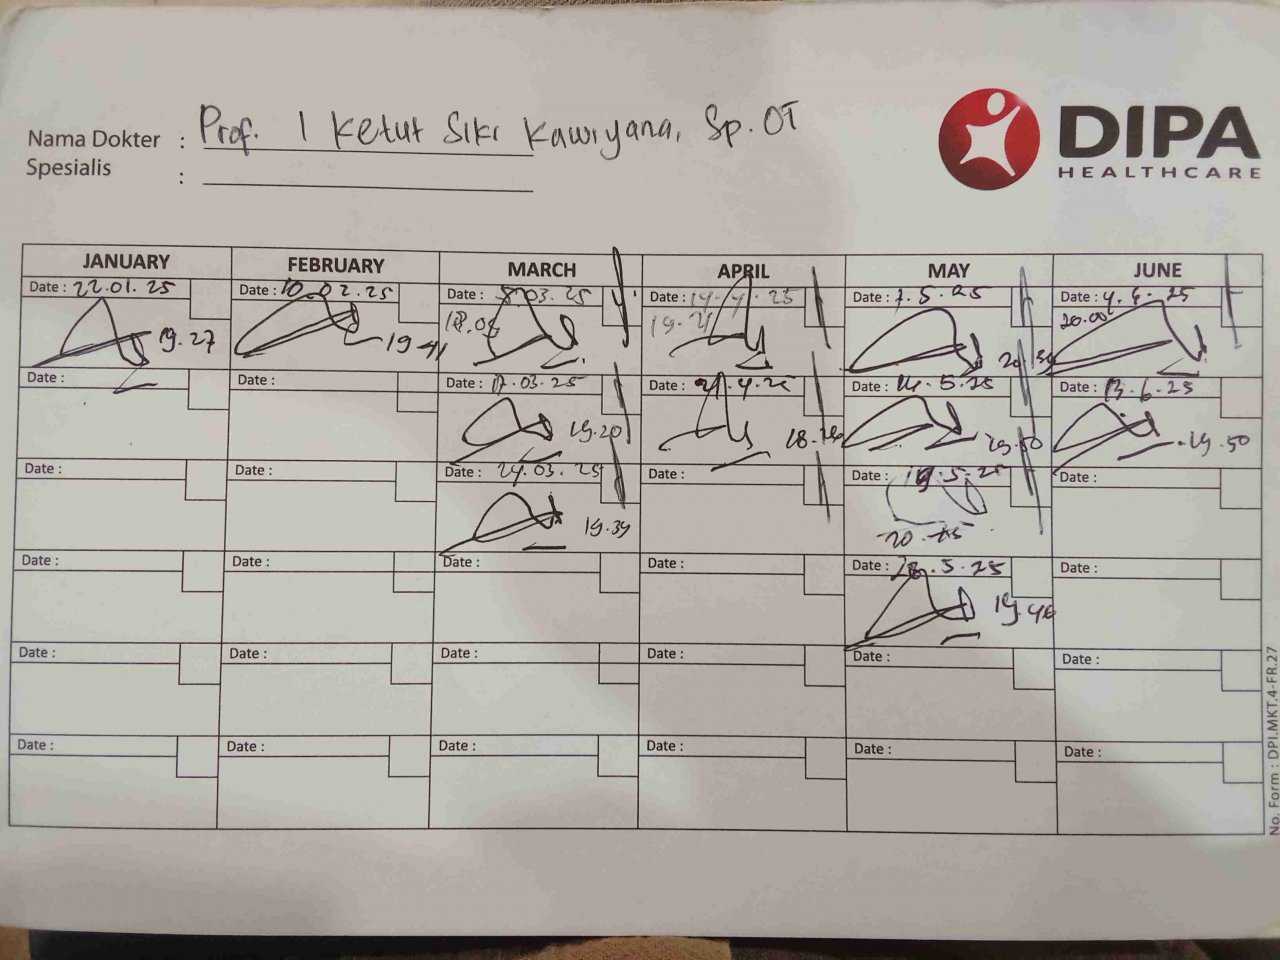 Nama Dokter : Prof. I Ketut Siki Kawiyana, Sp.OT
Spesialis :
DIPA
HEALTHCARE
JANUARY FEBRUARY MARCH APRIL MAY JUNE
Date : 22.01.25 Date : 10.02.25 Date : 03.25 Date : 14.4.25 Date : 7.5.25 Date : 4.6.25
19.27 19.41 18.05 19.21 20.00
Date : Date : Date : 17.03.25 Date : 21.4.25 Date : 14.5.25 Date : 13.6.25
19.20 19.50 19.50
Date : Date : Date : 24.03.25 Date : Date : 19.5.25 Date :
19.39
Date : Date : Date : Date : Date : 28.5.25 Date :
19.46
Date : Date : Date : Date : Date : Date :
Date : Date : Date : Date : Date : Date :
No. Form : DPI.MKT.4-FR.27